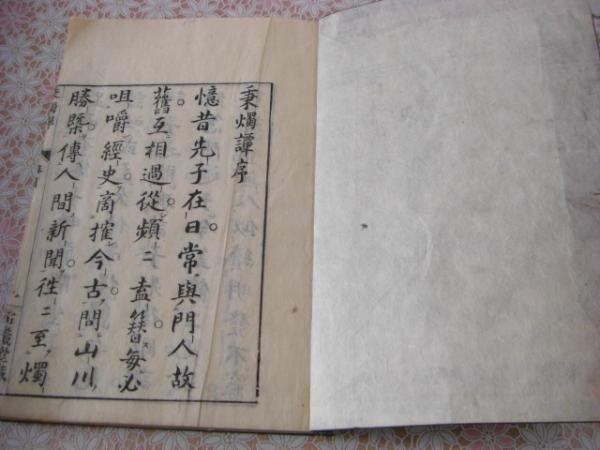 秉燭譚序
憶昔先子在日。常與門人故
舊。互相過從。頻ニ盍簪。每必
咀嚼經史。商搉今古。問山川
勝槩。傳人間新聞。徃ニ至燭